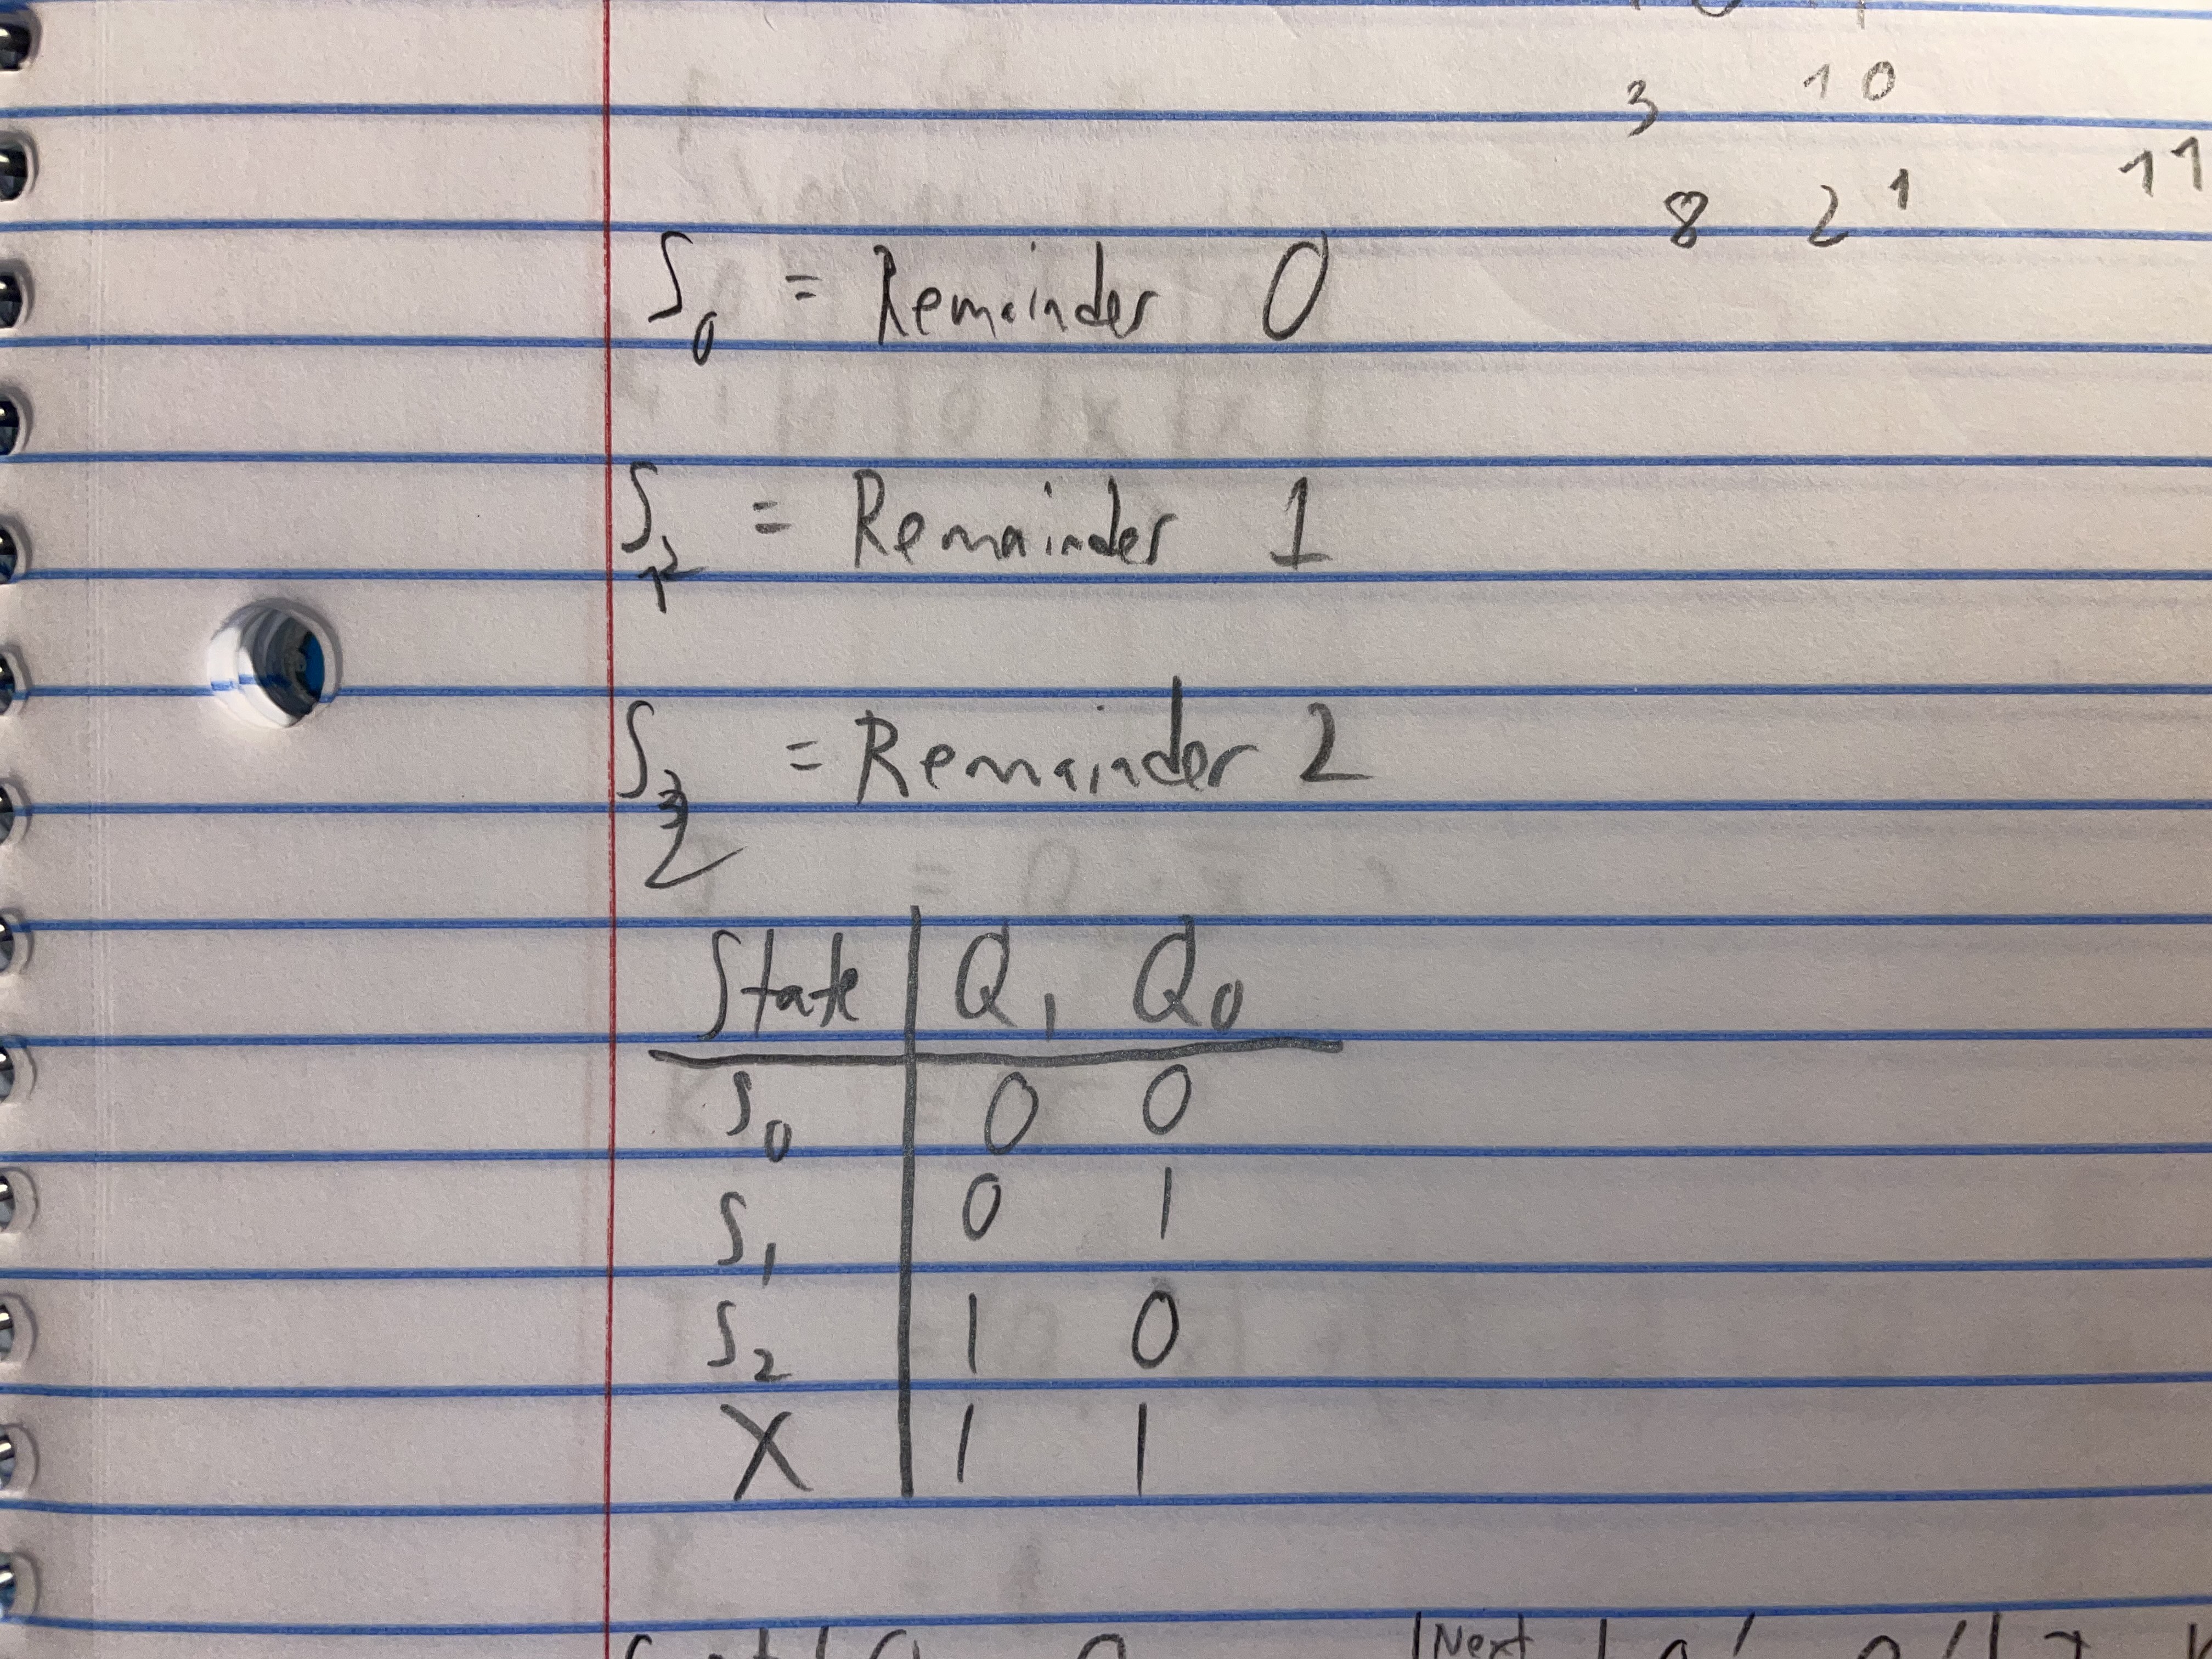 3 10
8 2 1 11
S0 = Remainder 0
S1 = Remainder 1
S2 = Remainder 2
State Q1 Q0
S0 0 0
S1 0 1
S2 1 0
X 1 1
Next